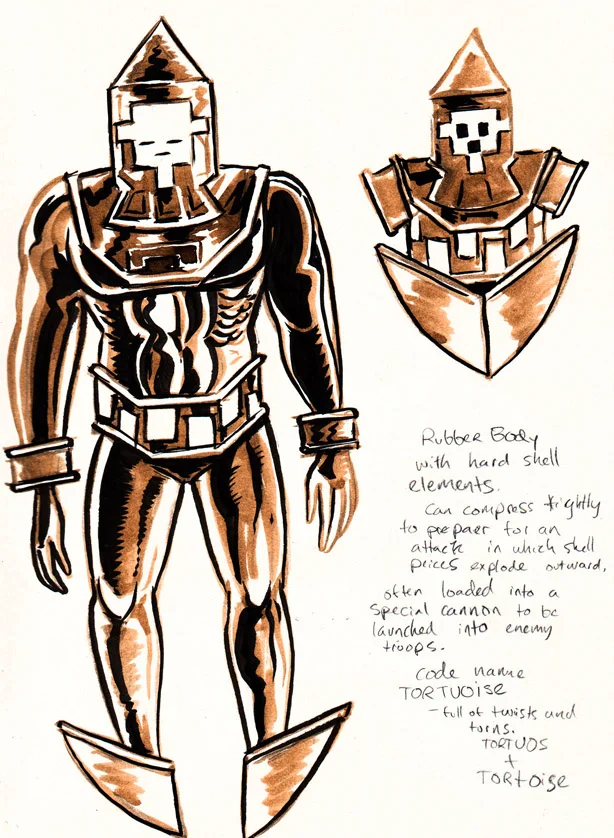 Rubber Body
with hard shell
elements.
can compress tightly
to prepaer for an
attack in which shell
peices explode outward,
often loaded into a
special cannon to be
launched into enemy
troops.
code name
TORTUOISE
- full of twists and
turns.
TORTUOS
+
TORTOISE